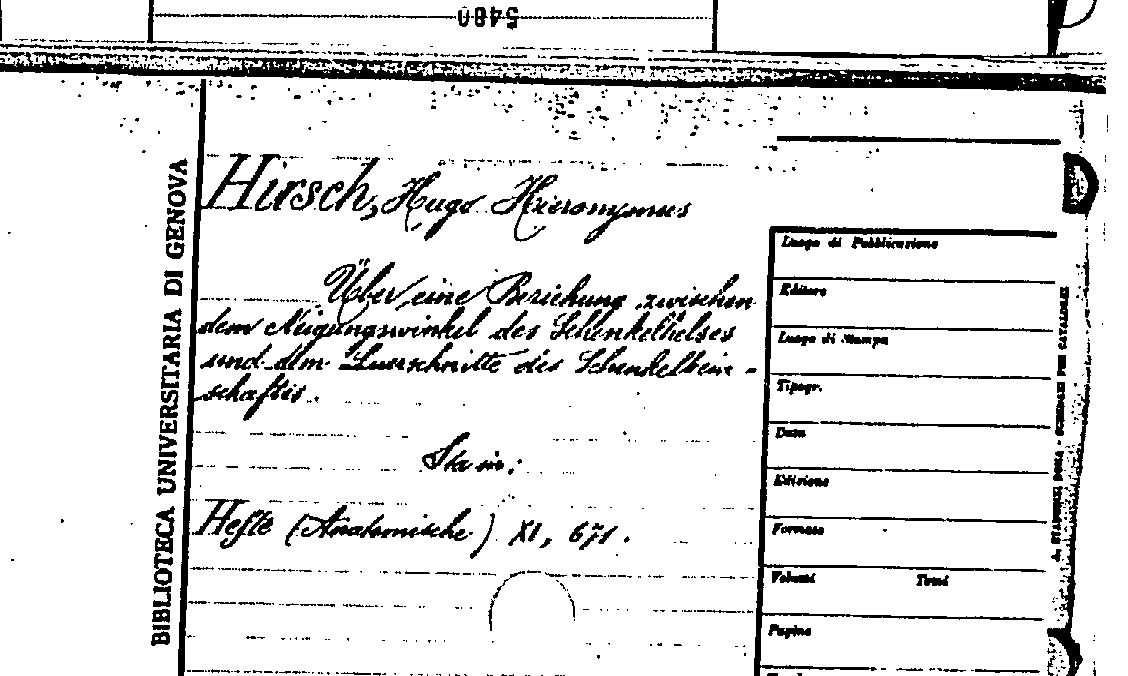 5480
BIBLIOTECA UNIVERSITARIA DI GENOVA
Hirsch, Hugo Hieronymus
Über eine Beziehung zwischen
dem Neigungswinkel des Schenkelhelses
und dem Querschnitte des Schenkelbein-
schaftes.
Sta in:
Hefte (Anatomische) XI, 671.
Luogo di Pubblicazione
Editore
Luogo di Stampa
Tipogr.
Data
Edizione
Formato
Volumi Tomi
Pagine